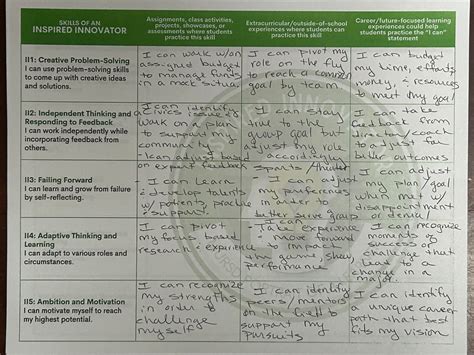 SKILLS OF AN
INSPIRED INNOVATOR
Assignments, class activities,
projects, showcases, or
assessments where students
practice this skill
Extracurricular/outside-of-school
experiences where students can
practice this skill
Career/future-focused learning
experiences could help
students practice the "I can"
statement
II1: Creative Problem-Solving
I can use problem-solving skills
to come up with creative ideas
and solutions.
I can work w/on
assigned budget
to manage funds
in a mock situa
I can pivot my
role on the fly
to reach a common
goal by team
I can budget
my time, efforts
money, & resources
to meet my goal
II2: Independent Thinking and
Responding to Feedback
I can work independently while
incorporating feedback from
others.
I can identify
civics issue &
work on a plan
to support my
community
I can adjust based
on expert feedback
I can stay
true to the
group goal but
adjust my role
accordingly
sports/theater
I can take
feedback from
director/coach
to adjust for
better outcomes
II3: Failing Forward
I can learn and grow from failure
by self-reflecting.
I can learn
& develop talents
w/ patients, practice
& support.
I can adjust
my preferences
in order to
better serve group
I can adjust
my plan/goal
when met w/
disappointment
or denial
II4: Adaptive Thinking and
Learning
I can adapt to various roles and
circumstances.
I can pivot
my focus based
research & experience
I can
take experience
& move forward
to impact
the game, show,
performance
I can recognize
moments of
success or
challenge that
lead to a
change in a
major.
II5: Ambition and Motivation
I can motivate myself to reach
my highest potential.
I can recognize
my strengths
in order to
challenge
myself
I can identify
peers/mentors
on the field to
support my
pursuits
I can identify
a unique career
path that best
fits my vision